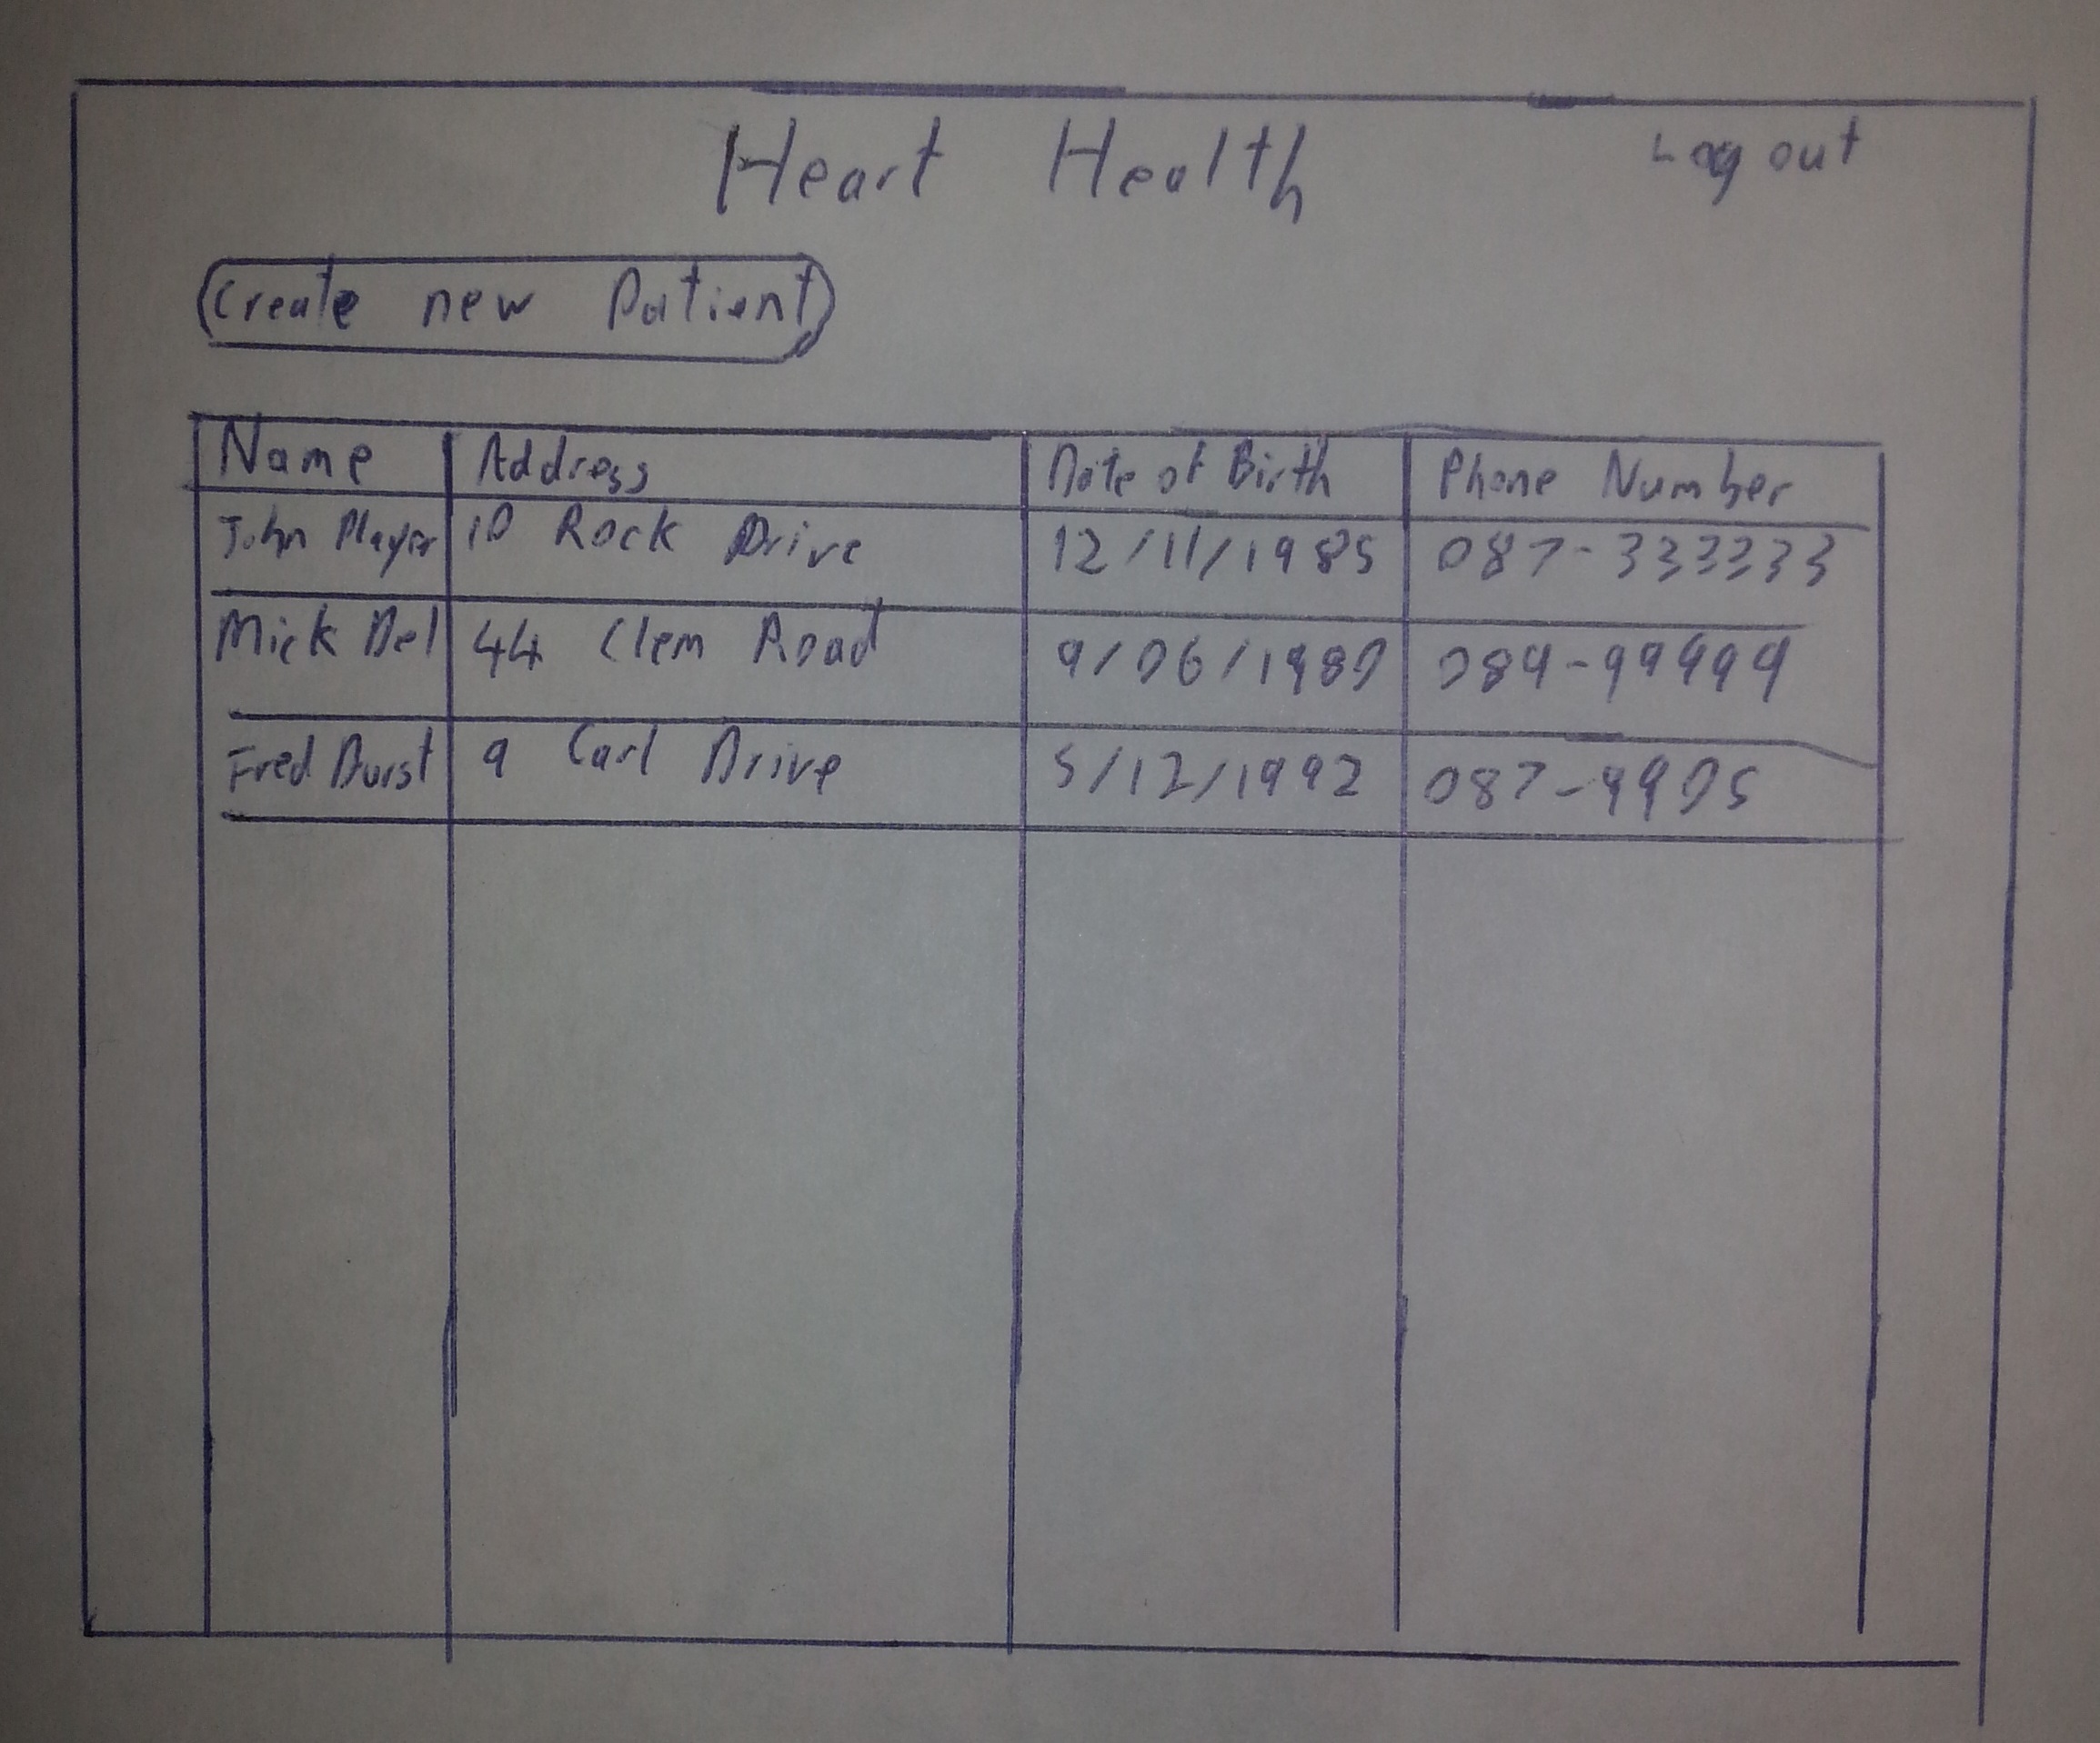 Heart Health
Log out
Create new Patient
Name Address Date of Birth Phone Number
John Player 10 Rock Drive 12/11/1985 087-333333
Mick Del 44 Clem Road 9/06/1980 089-99999
Fred Durst 9 Carl Drive 5/12/1992 087-9905